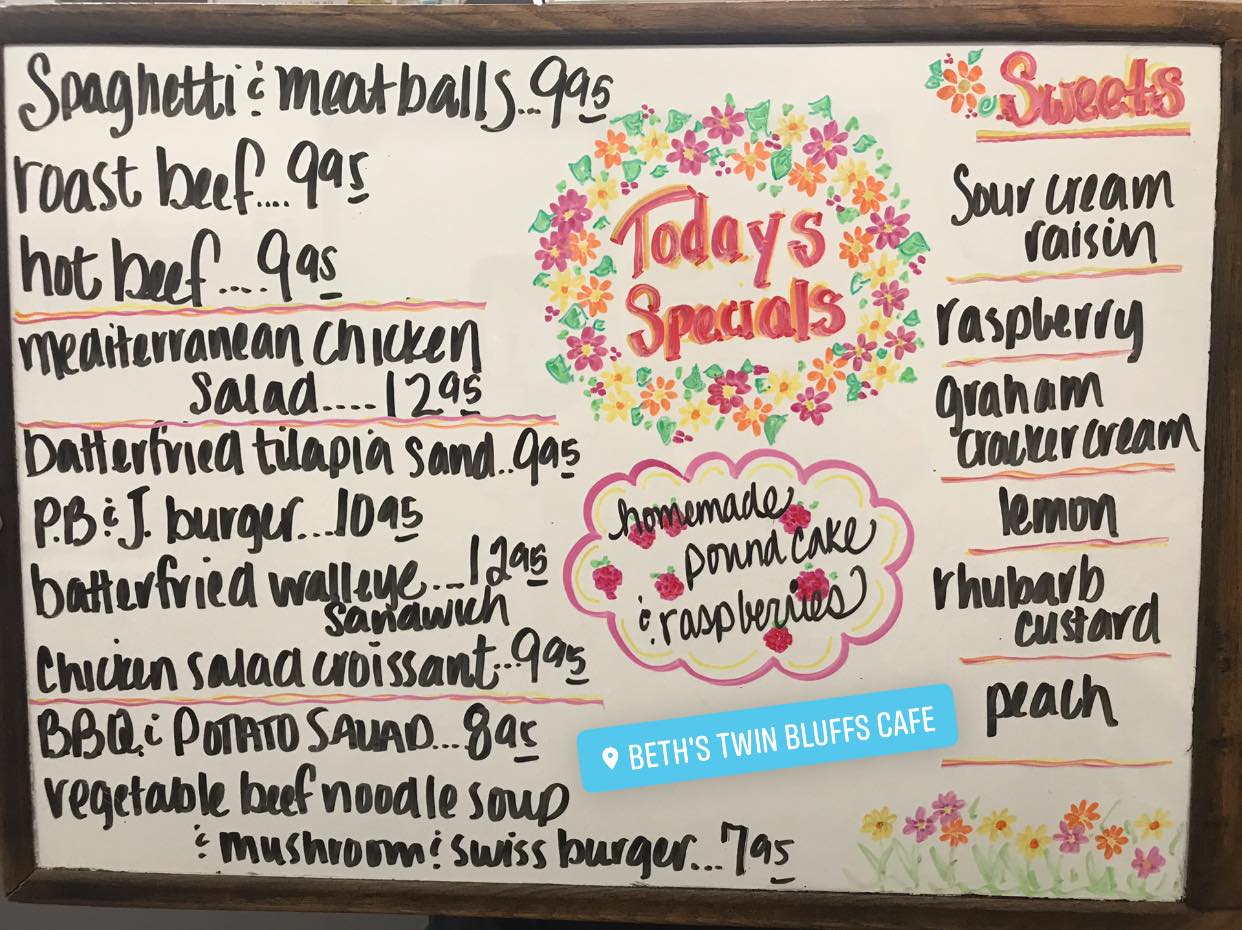 Spaghetti & meatballs...9 95
roast beef....9 95
hot beef....9 95
mediterranean chicken
salad....12 95
batterfried tilapia sand..9 95
P.B.&J. burger...10 95
batterfried walleye...12 95
sandwich
chicken salad croissant...9 95
BBQ & POTATO SALAD...8 95
vegetable beef noodle soup
& mushroom & swiss burger...7 95
Todays
Specials
homemade
pound cake
& raspberries
BETH'S TWIN BLUFFS CAFE
Sweets
Sour cream
raisin
raspberry
graham
cracker cream
lemon
rhubarb
custard
peach